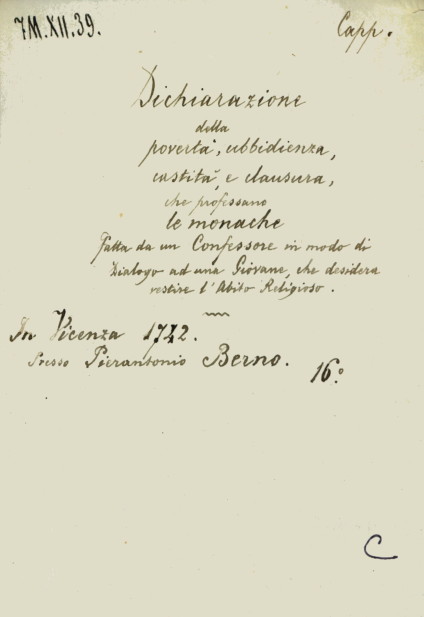 7M.XII.39.
Capp.
Dichiarazione
della
povertà, ubbidienza,
castità, e clausura,
che professano
le monache
Fatta da un Confessore in modo di
Dialogo ad una Giovane, che desidera
vestire l'Abito Religioso.
In Vicenza 1742.
Presso Pierantonio Berno.
16.º
C